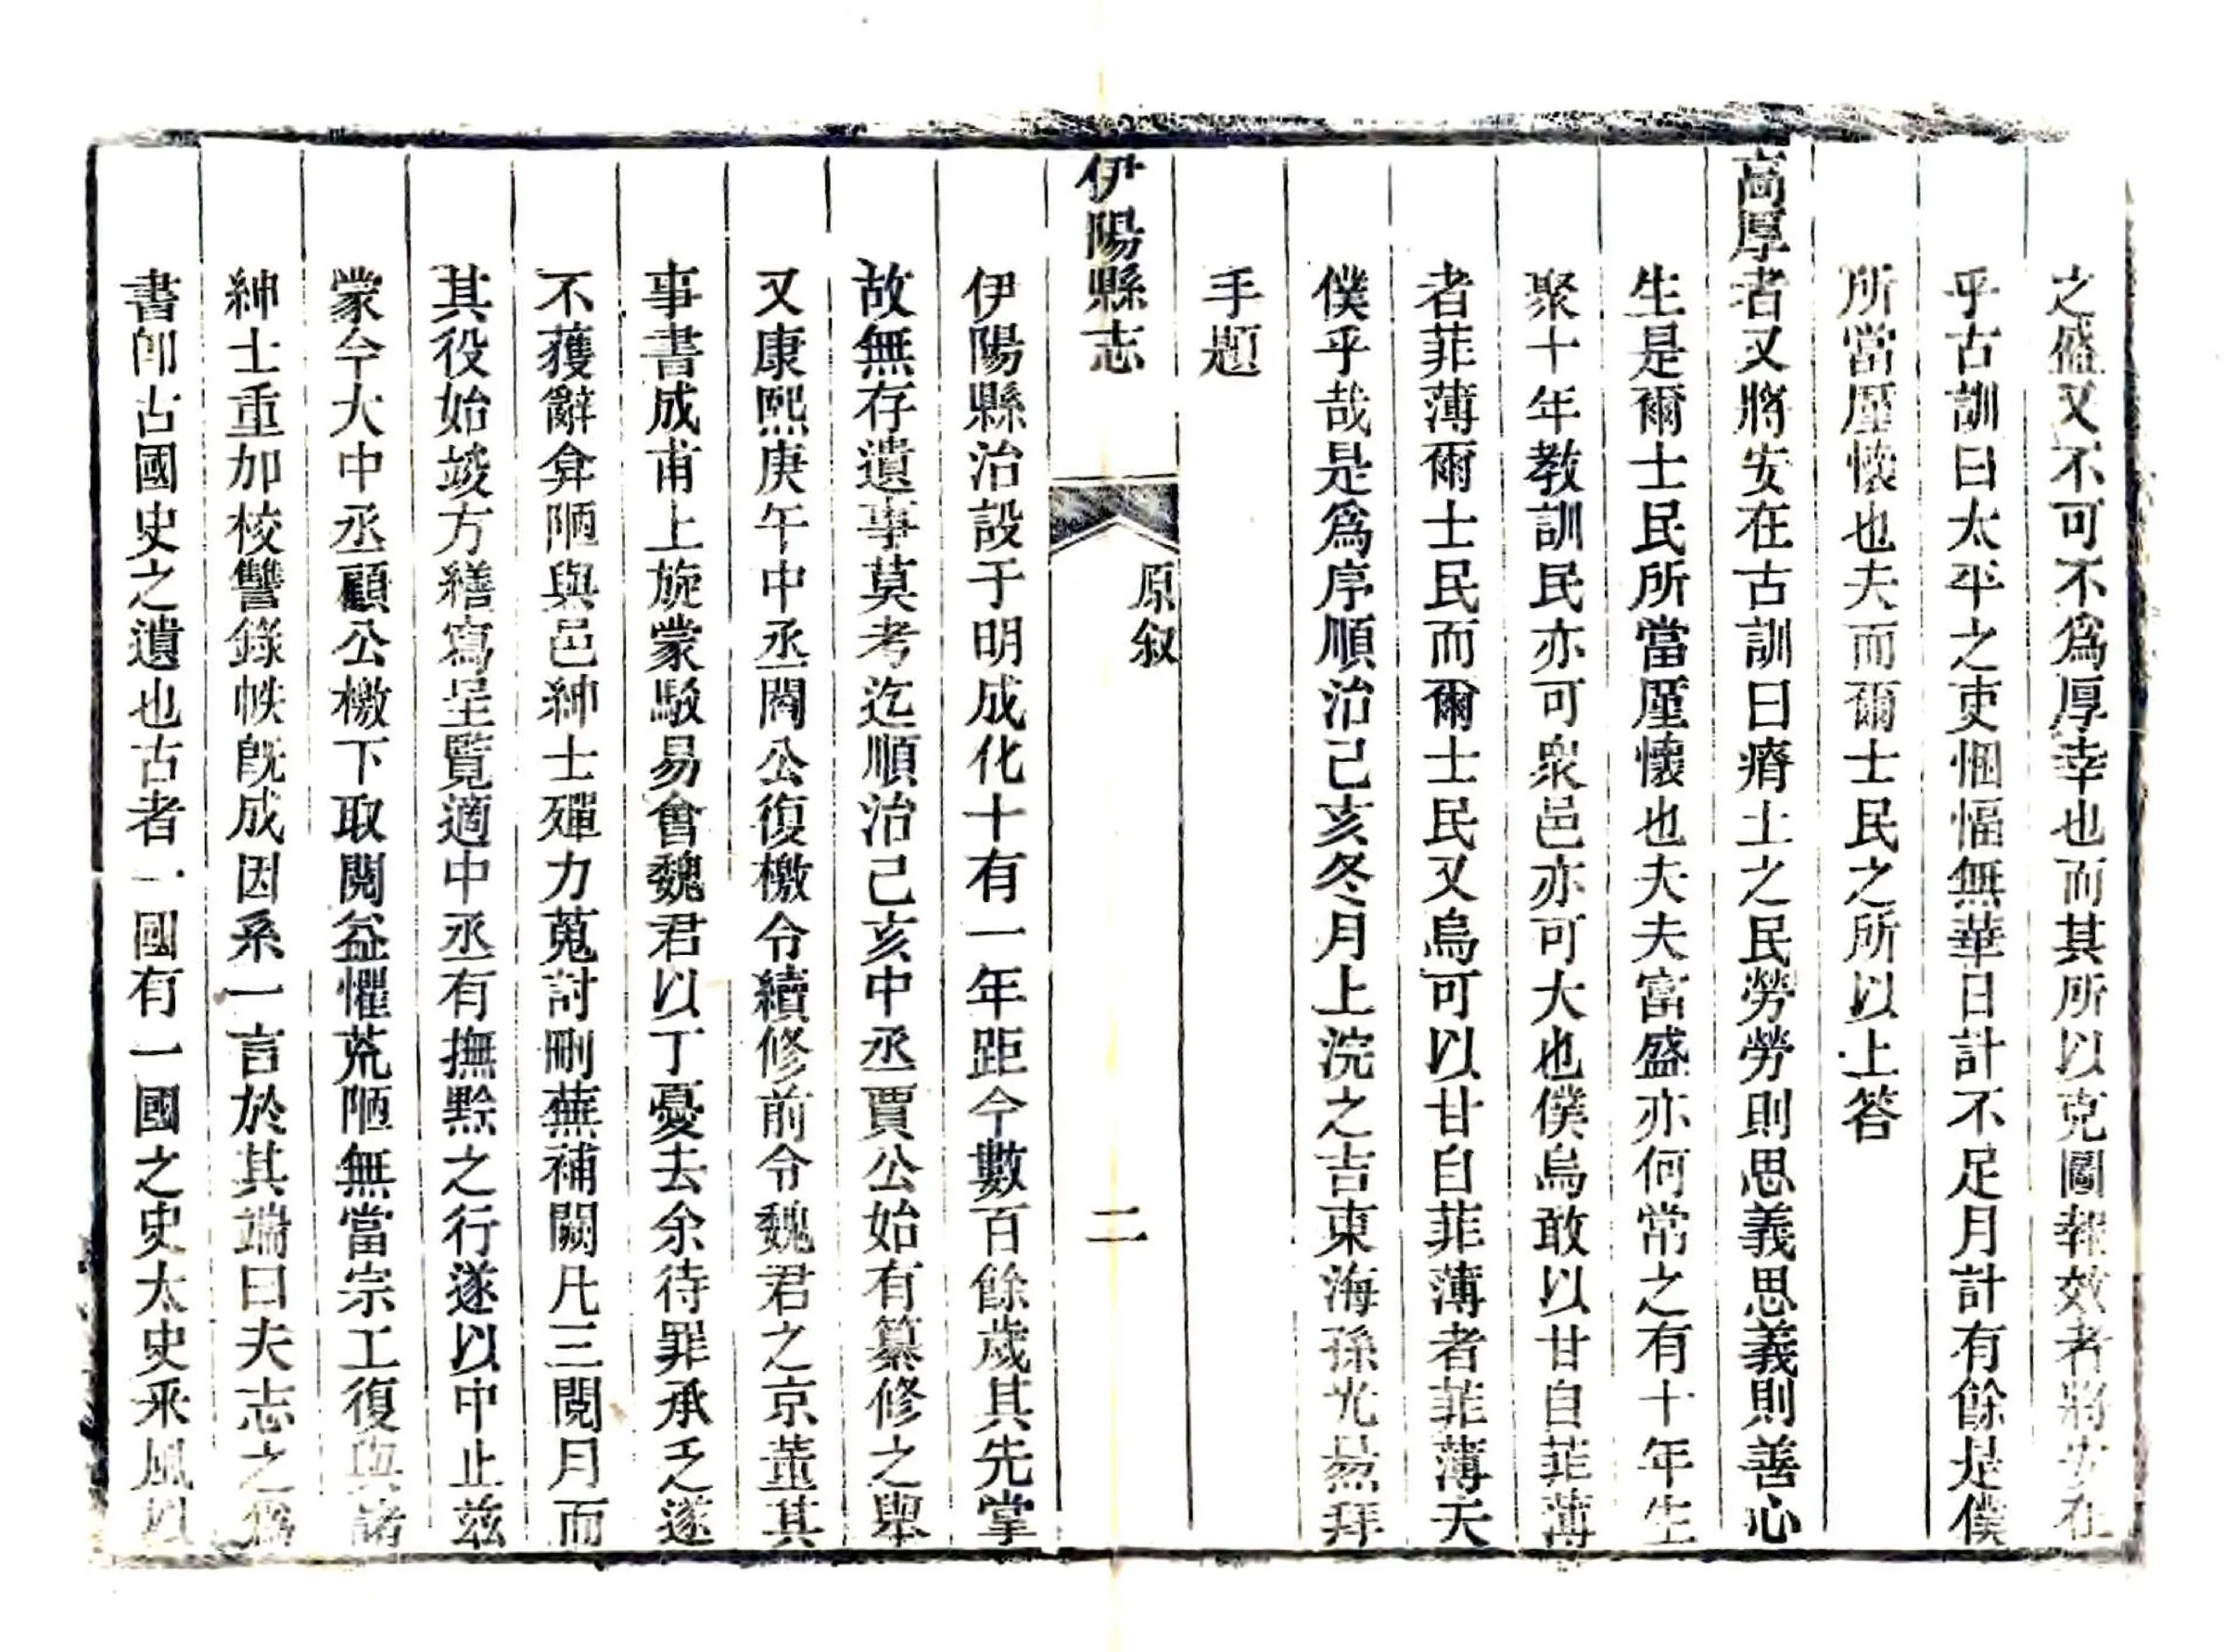 之盛又不可不爲厚幸也而其所以克圖報效者將安在
乎古訓曰太平之吏悃愊無華日計不足月計有餘是僕
所當厪懷也夫而爾士民之所以上答
高厚者又將安在古訓曰瘠土之民勞勞則思義思義則善心
生是爾士民所當厪懷也夫夫富盛亦何常之有十年生
聚十年教訓民亦可衆邑亦可大也僕烏敢以甘自菲薄
者菲薄爾士民而爾士民又烏可以甘自菲薄者菲薄天
僕乎哉是爲序順治己亥冬月上浣之吉東海孫光拜
手題
伊陽縣志
原叙
二
伊陽縣治設于明成化十有一年距今數百餘歲其先掌
故無存遺事莫考迄順治己亥中丞賈公始有纂修之舉
又康熙庚午中丞閻公復檄令續修前令魏君之京董其
事書成甫上旋蒙駁易會魏君以丁憂去余待罪承乏遂
不獲辭弇陋與邑紳士殫力蒐討刪蕪補闕凡三閱月而
其役始竣方繕寫呈覽適中丞有撫黔之行遂以中止兹
蒙今大中丞顧公檄下取閱益懼荒陋無當宗工復與諸
紳士重加校讐錄帙旣成因系一言於其端曰夫志之爲
書卽古國史之遺也古者一國有一國之史太史采風以